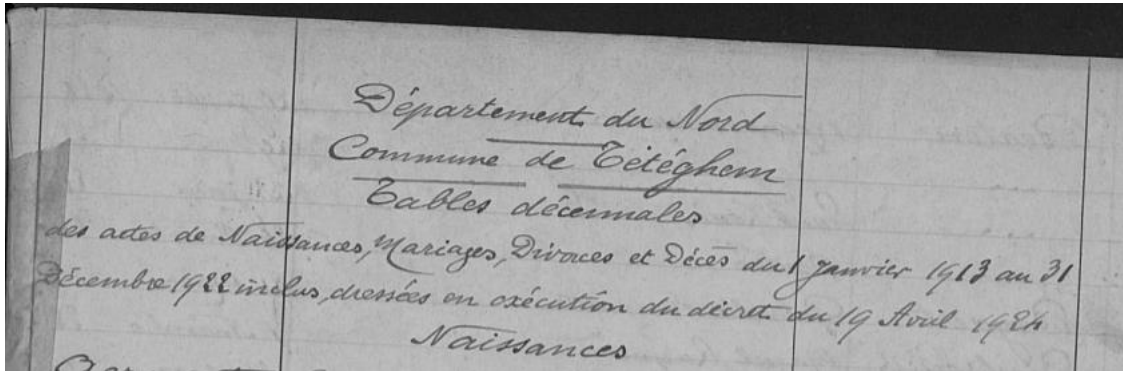 Département du Nord
Commune de Tétéghem
Tables décennales
des actes de Naissances, Mariages, Divorces et Décès du 1 Janvier 1913 au 31
Décembre 1922 inclus, dressées en exécution du décret du 19 Avril 1924
Naissances